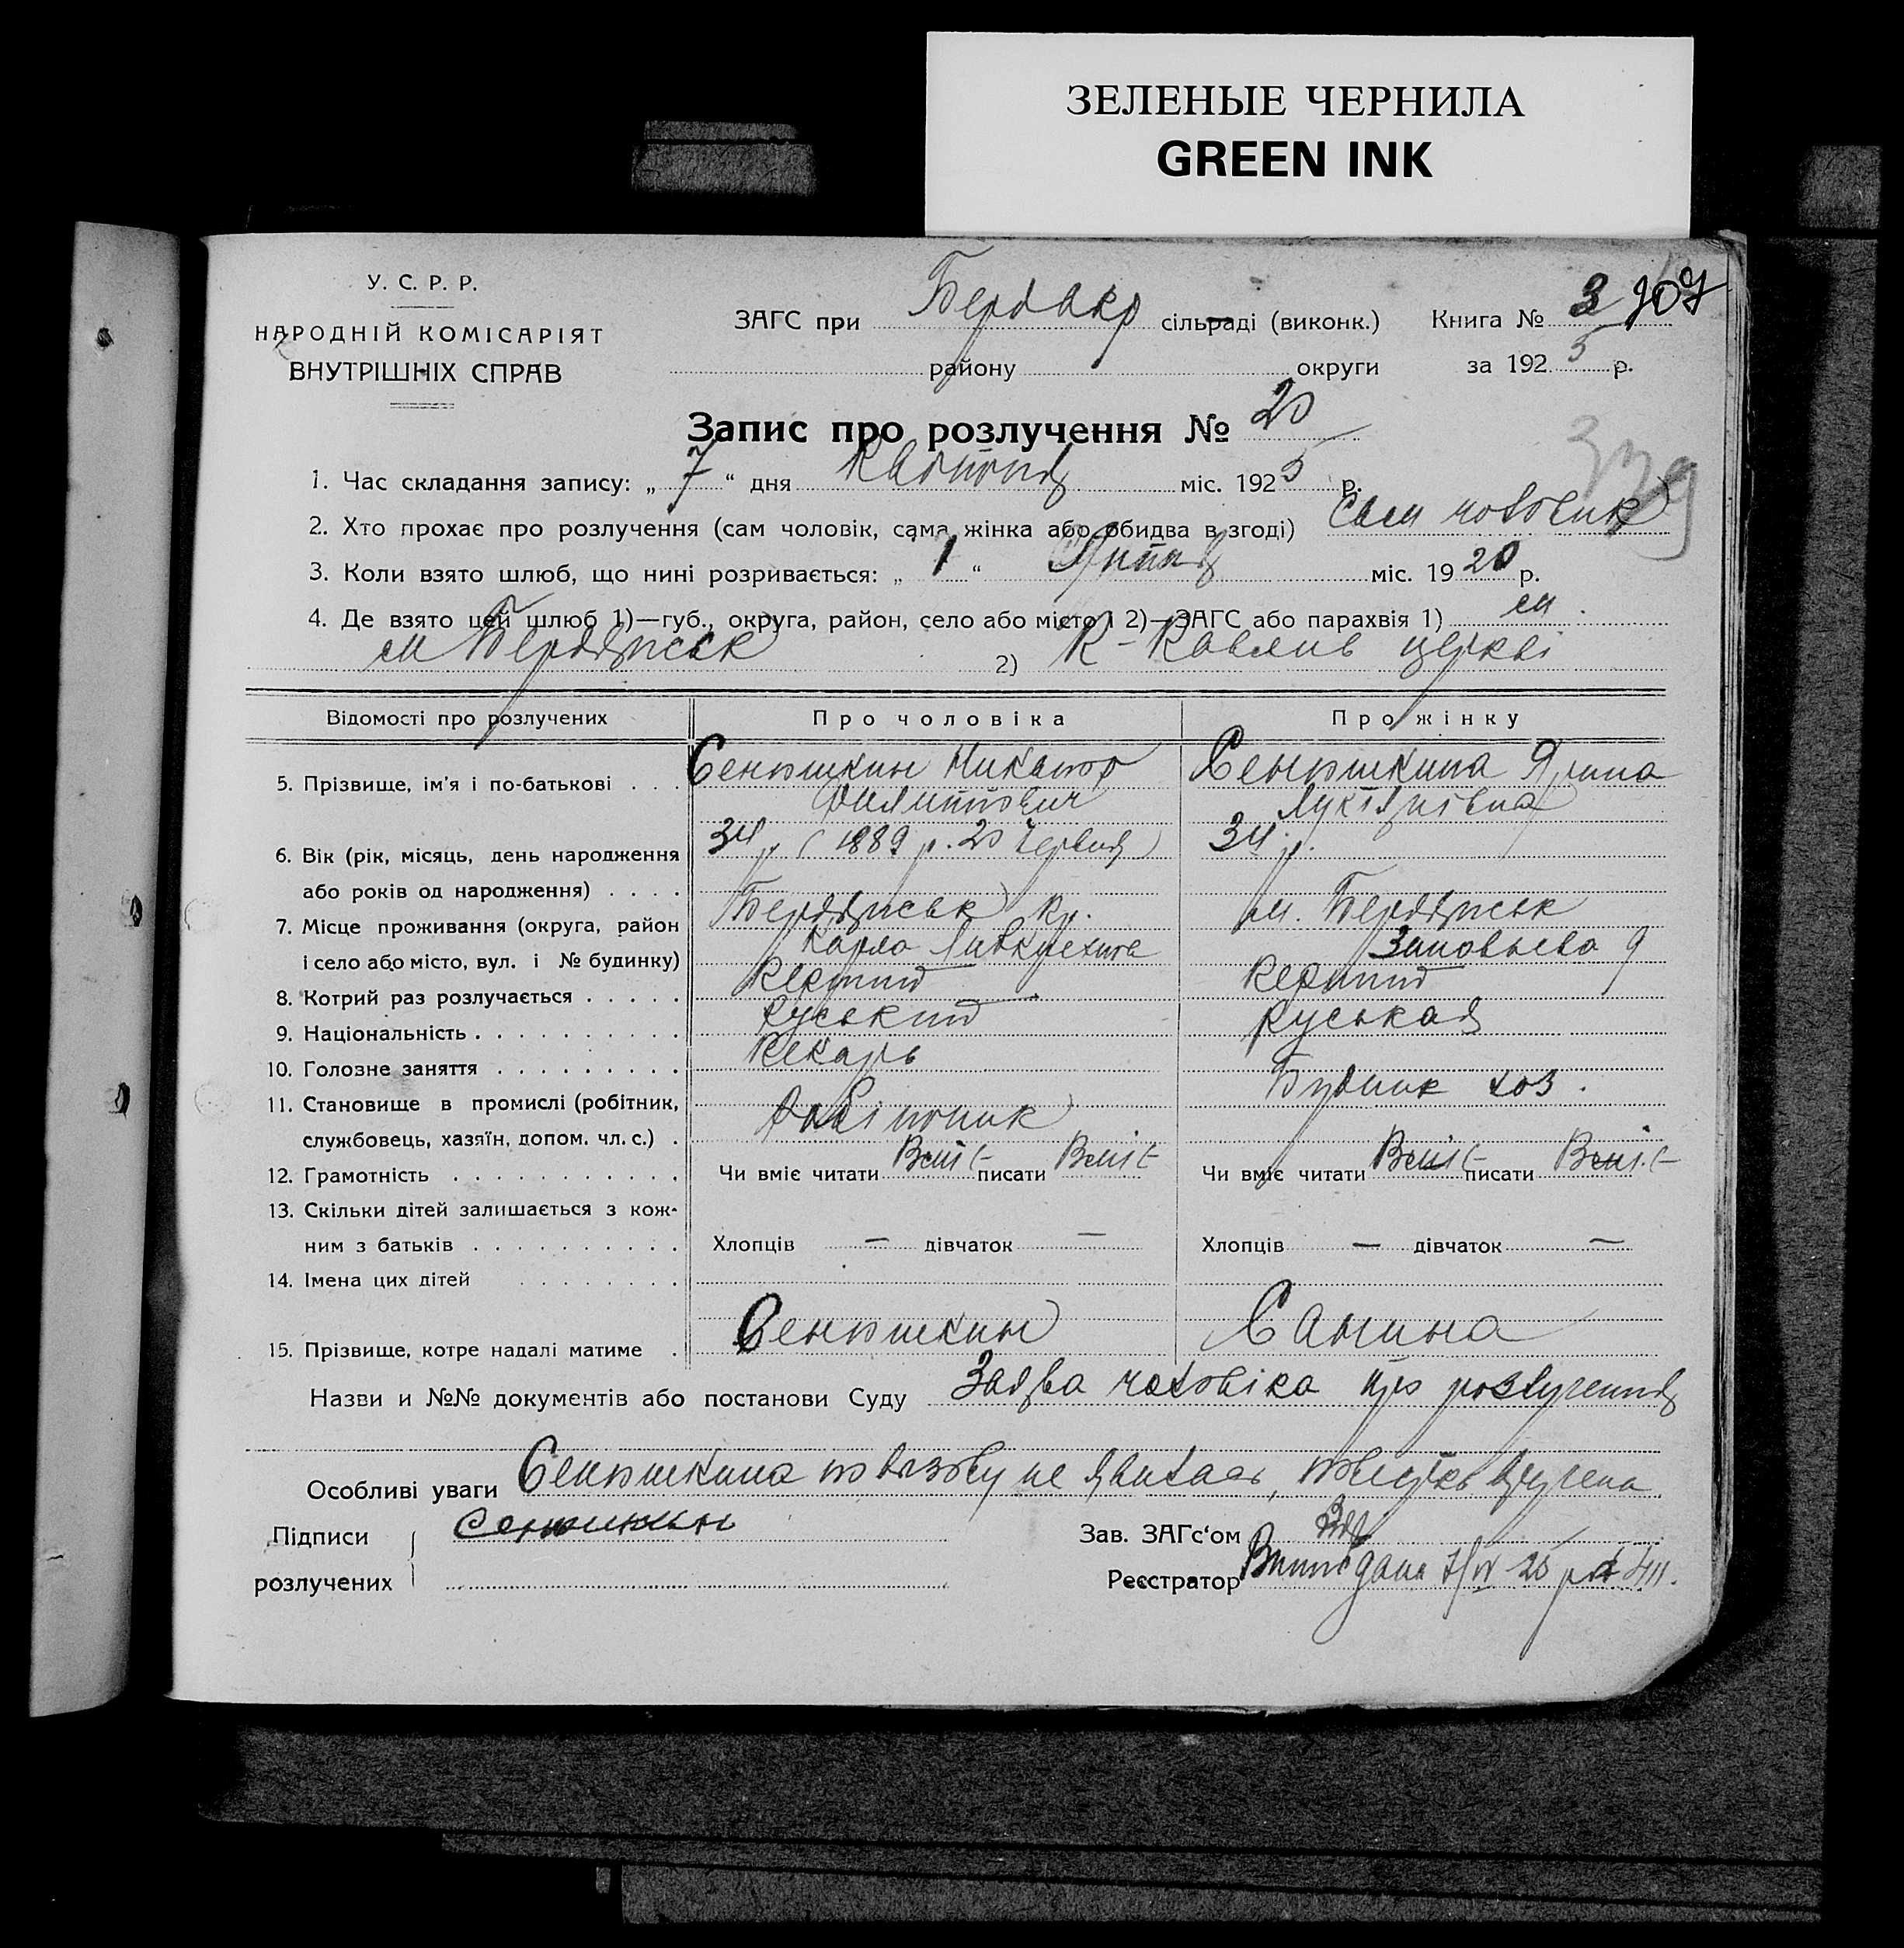 ЗЕЛЕНЫЕ ЧЕРНИЛА
GREEN INK
У. С. Р. Р.
НАРОДНІЙ КОМІСАРІЯТ
ВНУТРІШНІХ СПРАВ
ЗАГС при сільраді (виконк.) Книга № 3
району округи за 192 5 р.
Запис про розлучення № 20
1. Час складання запису: „ 7 “ дня Квітня міс. 192 5 р.
2. Хто прохає про розлучення (сам чоловік, сама жінка або обидва в згоді) Сам чоловік
3. Коли взято шлюб, що нині розривається: „ 1 “ міс. 19 20 р.
4. Де взято цей шлюб 1)—губ., округа, район, село або місто і 2)—ЗАГС або парахвія 1) м.
м Бердянськ 2) церкві
Відомості про розлучених Про чоловіка Про жінку
5. Прізвище, ім'я і по-батькові . . . Сенюшкин Никанор Сенюшкина
Филиппович Лукіянівна
6. Вік (рік, місяць, день народження 34 р. (1889 р. 20 Червня) 34 р.
або років од народження) . . . .
7. Місце проживання (округа, район Бердянськ м. Бердянськ
і село або місто, вул. і № будинку) Карла Либкнехта Зиновьева 9
8. Котрий раз розлучається . . . . . Первий Первий
9. Національність . . . . . . . . . . Руський Руськая
10. Головне заняття . . . . . . . . . Пекарь
11. Становище в промислі (робітник, Робітник хоз.
службовець, хазяїн, допом. чл. с.) .
12. Грамотність . . . . . . . . . . . Чи вміє читати Вміє писати Вміє Чи вміє читати Вміє писати Вміє
13. Скільки дітей залишається з кож-
ним з батьків . . . . . . . . . . Хлопців — дівчаток — Хлопців — дівчаток —
14. Імена цих дітей . . . . . . . .
15. Прізвище, котре надалі матиме . Сенюшкин Санина
Назви и №№ документів або постанови Суду Заява чоловіка про розлучення
Особливі уваги Сенюшкина по вызову не явилась, вручена
Підписи Сенюшкин Зав. ЗАГс'ом
розлучених Реєстратор